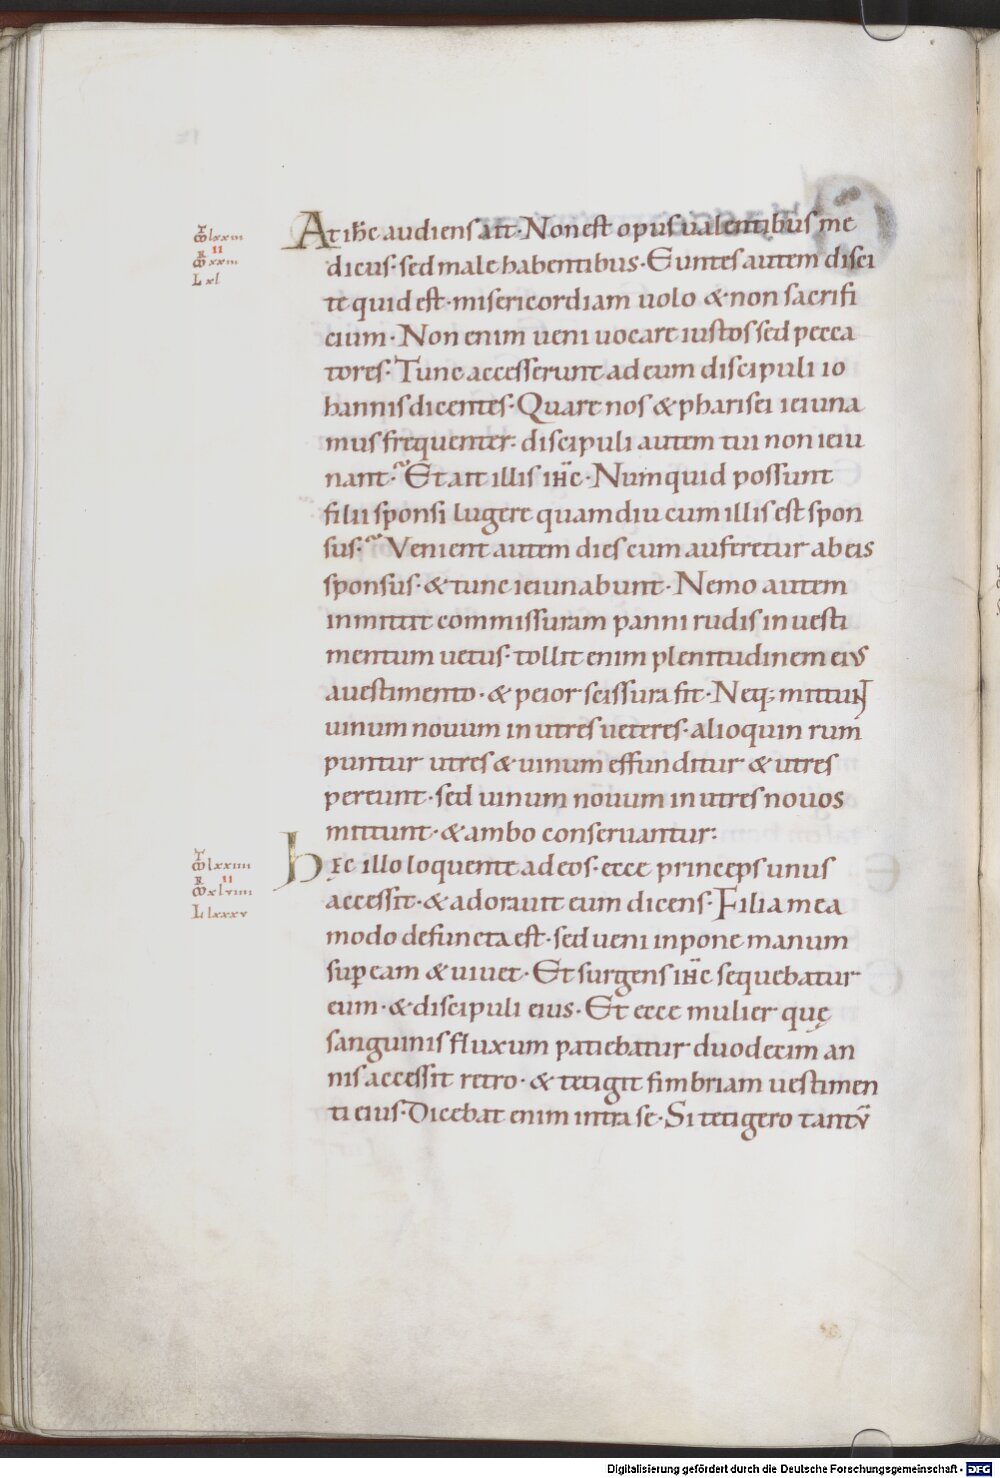 At ihc audiens ait· Non est opus ualentibus me
dicus· sed male habentibus· Euntes autem disci
te quid est· misericordiam uolo & non sacrifi
cium· Non enim ueni uocare iustos sed pecca
tores· Tunc accesserunt ad eum discipuli io
hannis dicentes· Quare nos & pharisei ieiuna
mus frequenter· discipuli autem tui non ieiu
nant· Et ait illis ihc· Numquid possunt
filii sponsi lugere quamdiu cum illis est spon
sus· Venient autem dies cum auferetur ab eis
sponsus· & tunc ieiunabunt· Nemo autem
inmittit commissuram panni rudis in uesti
mentum uetus· tollit enim plenitudinem eius
a uestimento· & peior scissura fit· Neq; mittun
uinum nouum in utres ueteres· alioquin rum
puntur utres & uinum effunditur & utres
pereunt· sed uinum nouum in utres nouos
mittunt· & ambo conseruantur:
hęc illo loquente ad eos· ecce princeps unus
accessit· & adorauit eum dicens· Filia mea
modo defuncta est· sed ueni inpone manum
sup eam & uiuet· Et surgens ihc sequebatur
eum· & discipuli eius· Et ecce mulier quę
sanguinis fluxum patiebatur duodecim an
nis accessit retro· & tetigit fimbriam uestimen
ti eius· Dicebat enim intra se· Si tetigero tantū
lxxiii
II
xxiii
L xl
lxxiiii
II
xlviiii
L lxxxv
Digitalisierung gefördert durch die Deutsche Forschungsgemeinschaft - DFG